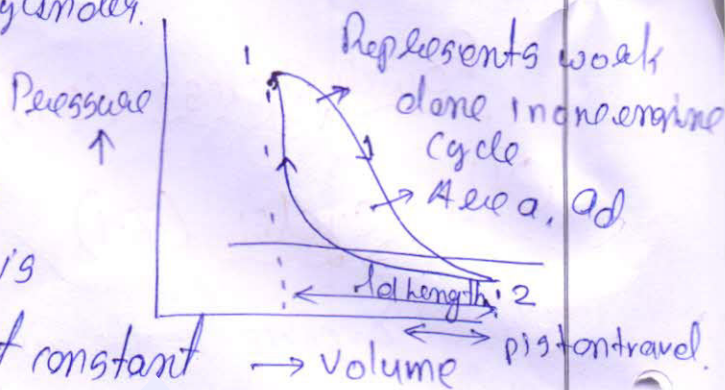 cylinder.
1
Represents work
Pressure
done in one engine
cycle
Area, ad
is
ld Length
2
t constant
→ volume
piston travel.